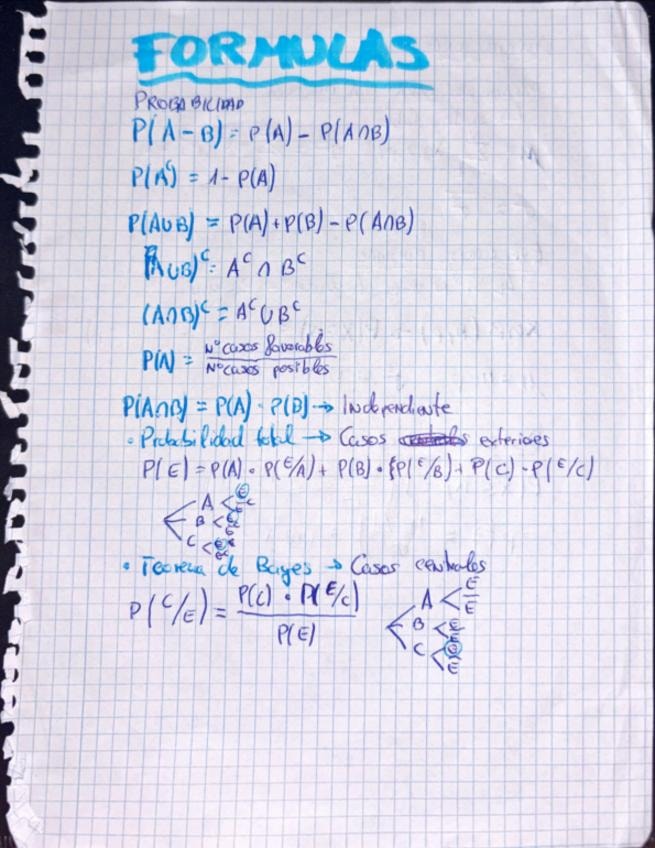 FORMULAS
PROBABILIDAD
P(A-B) = P(A) - P(A∩B)
P(Aᶜ) = 1 - P(A)
P(A∪B) = P(A) + P(B) - P(A∩B)
(A∪B)ᶜ = Aᶜ ∩ Bᶜ
(A∩B)ᶜ = Aᶜ ∪ Bᶜ
P(A) = Nº casos favorables / Nº casos posibles
P(A∩B) = P(A) · P(B) → Independiente
• Probabilidad total → Casos exteriores
P(E) = P(A) · P(E/A) + P(B) · {P(E/B) + P(C) · P(E/C)
A < E
B < E
C < E
• Teorema de Bayes → Casos centrales
P(C/E) = P(C) · P(E/C) / P(E)
A < E E
B < E E
C < E E